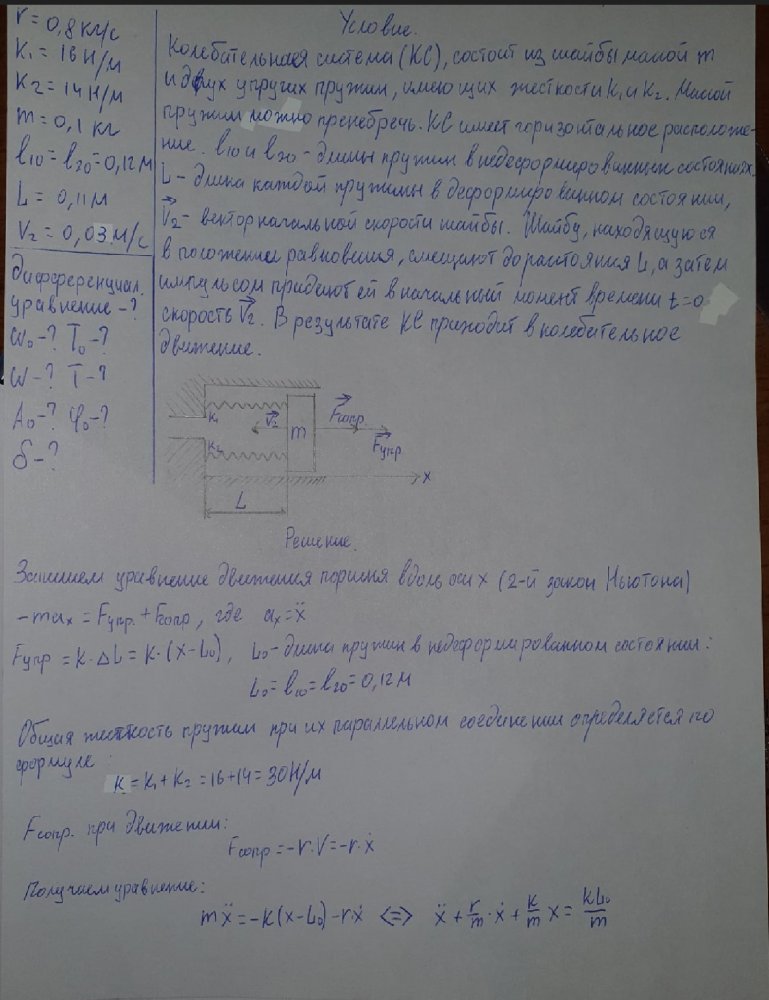 r = 0,8 кг/с
K₁ = 16 Н/м
K₂ = 14 Н/м
m = 0,1 кг
l₁₀ = l₂₀ = 0,12 м
L = 0,11 м
V₂ = 0,03 м/с
дифференциал.
уравнение - ?
ω₀ - ? T₀ - ?
ω - ? T - ?
A₀ - ? φ₀ - ?
δ - ?
Условие.
Колебательная система (КС), состоит из шайбы массой m
и двух упругих пружин, имеющих жесткости K₁ и K₂. Массой
пружин можно пренебречь. КС имеет горизонтальное расположе-
ние. l₁₀ и l₂₀ - длины пружин в недеформированных состояниях.
L - длина каждой пружины в деформированном состоянии,
V⃗₂ - вектор начальной скорости шайбы. Шайбу, находящуюся
в положении равновесия, смещают до расстояния L, а затем
импульсом придают ей в начальный момент времени t=0
скорость V⃗₂. В результате КС приходит в колебательное
движение.
K₁ V⃗₂ m F⃗сопр
K₂ F⃗упр
x
L
Решение.
Запишем уравнение движения поршня вдоль оси x (2-й закон Ньютона)
-maₓ = Fупр. + Fсопр, где aₓ = ẍ
Fупр = K · ΔL = K · (x - L₀), L₀ - длина пружин в недеформированном состоянии:
L₀ = l₁₀ = l₂₀ = 0,12 м
Общая жесткость пружин при их параллельном соединении определяется по
формуле
K = K₁ + K₂ = 16 + 14 = 30 Н/м
Fсопр. при движении:
Fсопр = -r · V = -r · ẋ
Получаем уравнение:
mẍ = -K(x - L₀) - r · ẋ <=> ẍ + r/m · ẋ + K/m x = KL₀/m